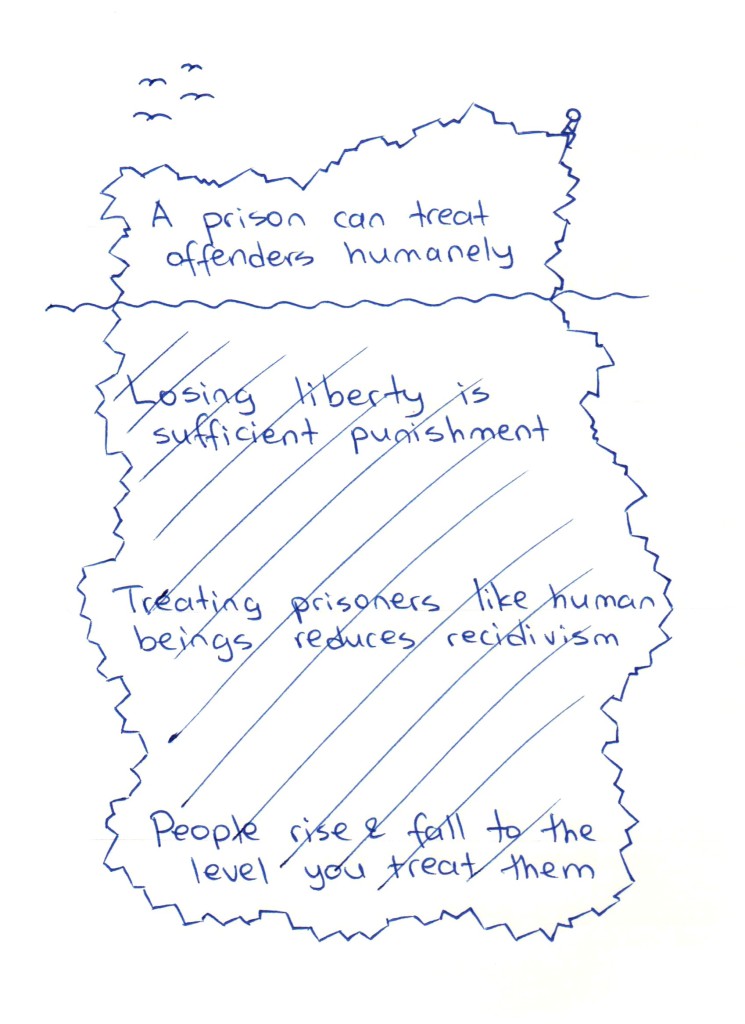 A prison can treat
offenders humanely
Losing liberty is
sufficient punishment
Treating prisoners like human
beings reduces recidivism
People rise & fall to the
level you treat them